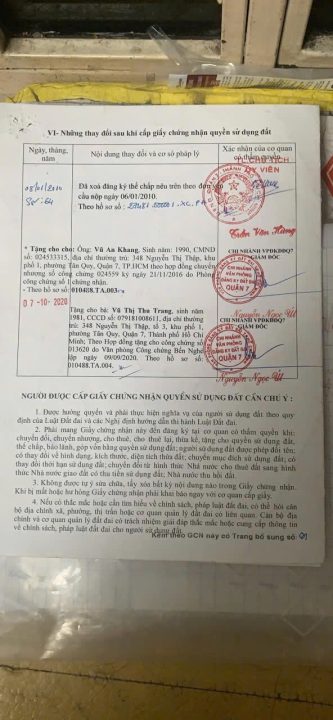 VI- Những thay đổi sau khi cấp giấy chứng nhận quyền sử dụng đất
Ngày, tháng, năm
Nội dung thay đổi và cơ sở pháp lý
Xác nhận của cơ quan có thẩm quyền
Đã xoá đăng ký thế chấp nêu trên theo đơn yêu
cầu nộp ngày 06/01/2010.
Theo hồ sơ số :
TL.CHỦ TỊCH
ỦY VIÊN
Trần Văn Hùng
* Tặng cho cho: Ông: Vũ An Khang. Sinh năm: 1990, CMND
số: 024533315, địa chỉ thường trú: 348 Nguyễn Thị Thập, khu
phố 1, phường Tân Quy, Quận 7, TP.HCM theo hợp đồng chuyển
nhượng số công chứng 024559 ký ngày 21/11/2016 do Phòng
công chứng số 1 chứng nhận.
- Theo hồ sơ số: 010488.TA.003
CHI NHÁNH VPĐKĐĐQ7
GIÁM ĐỐC
CHI NHÁNH
VĂN PHÒNG
ĐĂNG KÝ ĐẤT ĐAI
QUẬN 7
Nguyễn Ngọc
07-10-2020
Tặng cho bà: Vũ Thị Thu Trang, sinh năm
1981, CCCD số: 079181008611, địa chỉ thường
trú: 348 Nguyễn Thị Thập, tổ 3, khu phố 1,
phường Tân Quy, Quận 7, Thành phố Hồ Chí
Minh; Theo Hợp đồng tặng cho công chứng số
013620 do Văn phòng Công chứng Bến Nghé
lập ngày 09/09/2020. Theo hồ sơ số:
010488.TA.004.
CHI NHÁNH VPĐKĐĐQ7
GIÁM ĐỐC
CHI NHÁNH
VĂN PHÒNG
ĐĂNG KÝ ĐẤT ĐAI
QUẬN 7
Nguyễn Ngọc
NGƯỜI ĐƯỢC CẤP GIẤY CHỨNG NHẬN QUYỀN SỬ DỤNG ĐẤT CẦN CHÚ Ý :
1. Được hưởng quyền và phải thực hiện nghĩa vụ của người sử dụng đất theo quy
định của Luật Đất đai và các Nghị định hướng dẫn thi hành Luật Đất đai.
2. Phải mang Giấy chứng nhận này đến đăng ký tại cơ quan có thẩm quyền khi:
chuyển đổi, chuyển nhượng, cho thuê, cho thuê lại, thừa kế, tặng cho quyền sử dụng đất,
thế chấp, bảo lãnh, góp vốn bằng quyền sử dụng đất; người sử dụng đất được phép đổi tên;
có thay đổi về hình dạng, kích thước, diện tích thửa đất; chuyển mục đích sử dụng đất; có
thay đổi thời hạn sử dụng đất; chuyển đổi từ hình thức Nhà nước cho thuê đất sang hình
thức Nhà nước giao đất có thu tiền sử dụng đất; Nhà nước thu hồi đất.
3. Không được tự ý sửa chữa, tẩy xóa bất kỳ nội dung nào trong Giấy chứng nhận.
Khi bị mất hoặc hư hỏng Giấy chứng nhận phải khai báo ngay với cơ quan cấp giấy.
4. Nếu có thắc mắc hoặc cần tìm hiểu về chính sách, pháp luật đất đai, có thể hỏi cán
bộ địa chính xã, phường, thị trấn hoặc cơ quan quản lý đất đai có liên quan. Cán bộ địa
chính và cơ quan quản lý đất đai có trách nhiệm giải đáp thắc mắc hoặc cung cấp thông tin
về chính sách, pháp luật đất đai cho người sử dụng đất.
Kèm theo GCN này có Trang bổ sung số: 01